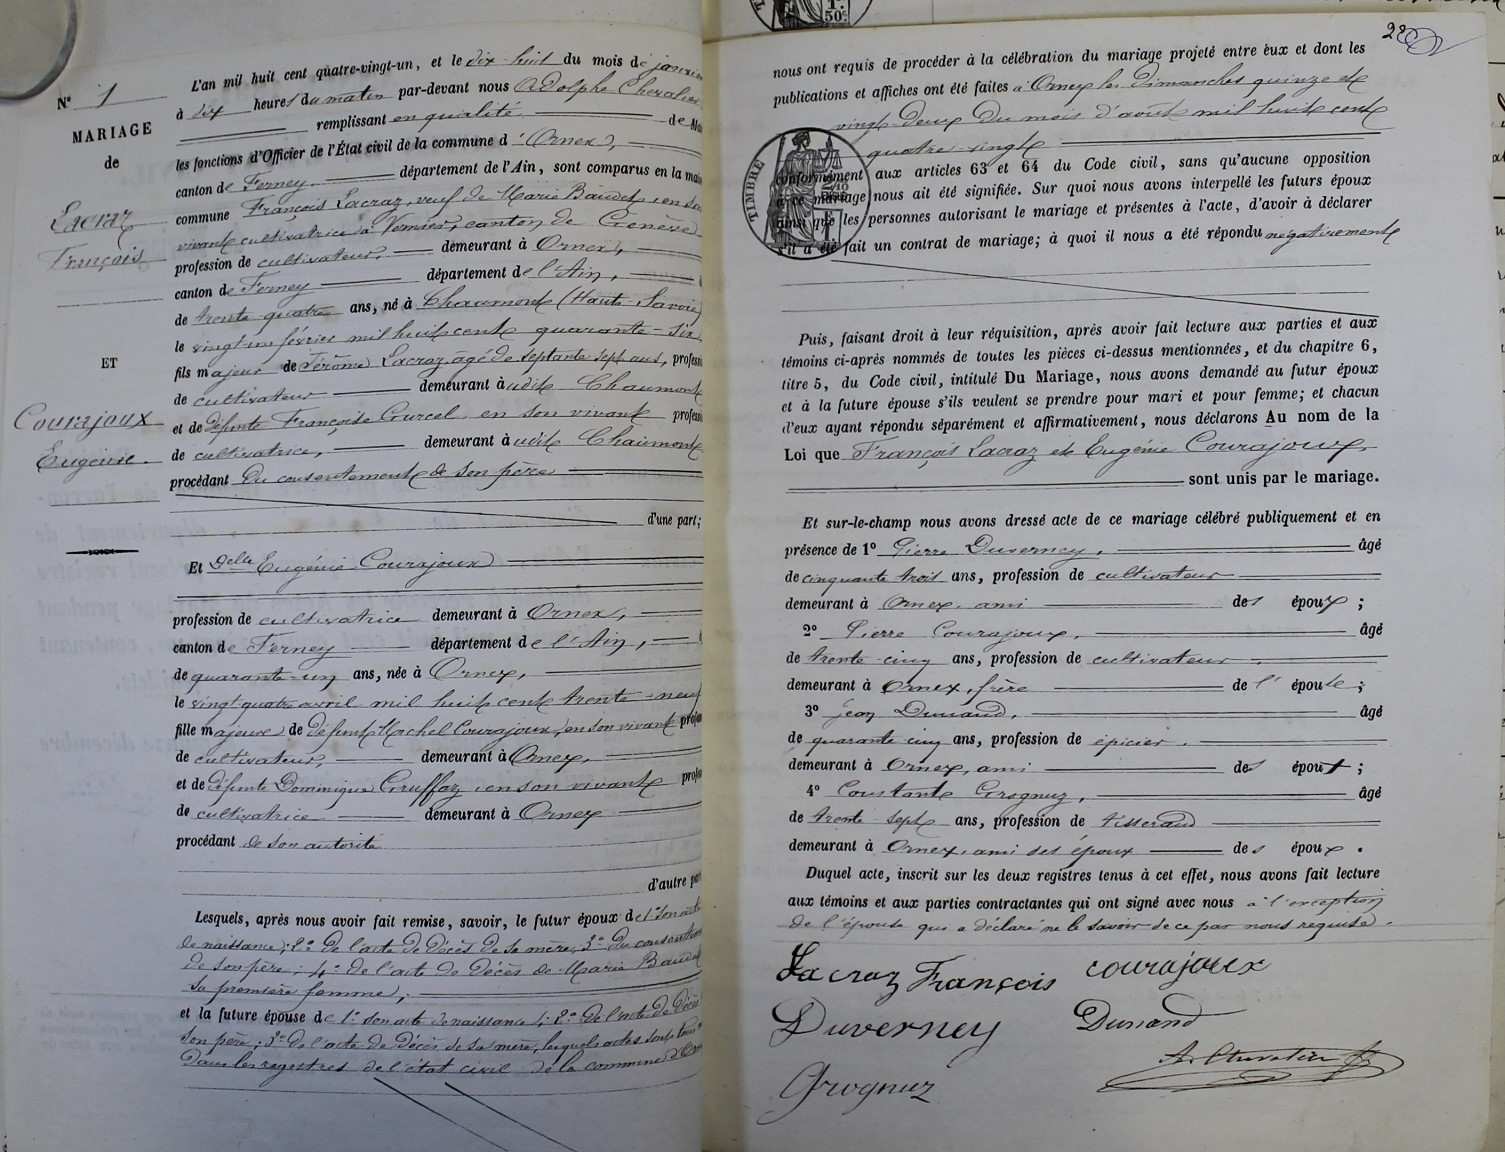 N° 1
MARIAGE
de
Lacraz
François
ET
Courajoux
Eugénie.
L'an mil huit cent quatre-vingt-un, et le dix-huit du mois de janvier
à dix heures du matin par-devant nous Adolphe Chevalier
remplissant en qualité de Mai
les fonctions d'Officier de l'État civil de la commune d'Ornex,
canton de Ferney, département de l'Ain, sont comparus en la mai
commune François Lacraz, veuf de Marie Baudet, en son
vivant cultivatrice à Vernier, canton de Genève
profession de cultivateur, demeurant à Ornex,
canton de Ferney département de l'Ain,
de trente quatre ans, né à Chaumont (Haute-Savoie)
le vingt un février mil huit cent quarante-six
fils majeur de Jérôme Lacraz âgé de septante sept ans, professi
de cultivateur demeurant à udit Chaumont
et de défunte Françoise Courcel en son vivant professi
de cultivatrice, demeurant à udit Chaumont
procédant du consentement de son père
d'une part;
Et Delle Eugénie Courajoux
profession de cultivatrice demeurant à Ornex,
canton de Ferney département de l'Ain,
de quarante-un ans, née à Ornex,
le vingt quatre avril mil huit cent trente-neuf
fille majeure de défunt Michel Courajoux, en son vivant profes
de cultivateur, demeurant à Ornex,
et de défunte Dominique Gruffaz, en son vivant profes
de cultivatrice demeurant à Ornex
procédant de son autorité
d'autre part
Lesquels, après nous avoir fait remise, savoir, le futur époux de 1° son acte
de naissance; 2° de l'acte de décès de sa mère; 3° du consentem
de son père; 4° de l'acte de décès de Marie Baudet
sa première femme;
et la future épouse de 1° son acte de naissance; 2° de l'acte de décès
son père; 3° de l'acte de décès de sa mère, lesquels actes sont tous
dans les registres de l'état civil de la commune d'Orn
22
nous ont requis de procéder à la célébration du mariage projeté entre eux et dont les
publications et affiches ont été faites à Ornex les dimanches quinze et
vingt-deux du mois d'août mil huit cent
quatre-vingt
conformément aux articles 63 et 64 du Code civil, sans qu'aucune opposition
à ce mariage nous ait été signifiée. Sur quoi nous avons interpellé les futurs époux
ainsi que les personnes autorisant le mariage et présentes à l'acte, d'avoir à déclarer
s'il a été fait un contrat de mariage; à quoi il nous a été répondu négativement
TIMBRE
Puis, faisant droit à leur réquisition, après avoir fait lecture aux parties et aux
témoins ci-après nommés de toutes les pièces ci-dessus mentionnées, et du chapitre 6,
titre 5, du Code civil, intitulé Du Mariage, nous avons demandé au futur époux
et à la future épouse s'ils veulent se prendre pour mari et pour femme; et chacun
d'eux ayant répondu séparément et affirmativement, nous déclarons Au nom de la
Loi que François Lacraz et Eugénie Courajoux,
sont unis par le mariage.
Et sur-le-champ nous avons dressé acte de ce mariage célébré publiquement et en
présence de 1° Pierre Duverney, âgé
de cinquante trois ans, profession de cultivateur
demeurant à Ornex, ami des époux;
2° Pierre Courajoux, âgé
de trente-cinq ans, profession de cultivateur,
demeurant à Ornex, frère de l'épouse;
3° Jean Dunand, âgé
de quarante cinq ans, profession de épicier.
demeurant à Ornex, ami des époux;
4° Constant Grognuz, âgé
de trente-sept ans, profession de tisserand
demeurant à Ornex, ami des époux des époux.
Duquel acte, inscrit sur les deux registres tenus à cet effet, nous avons fait lecture
aux témoins et aux parties contractantes qui ont signé avec nous à l'exception
de l'épouse qui a déclaré ne le savoir de ce par nous requise.
Lacraz François courajoux
Duverney Dunand
Grognuz A. Chevalier